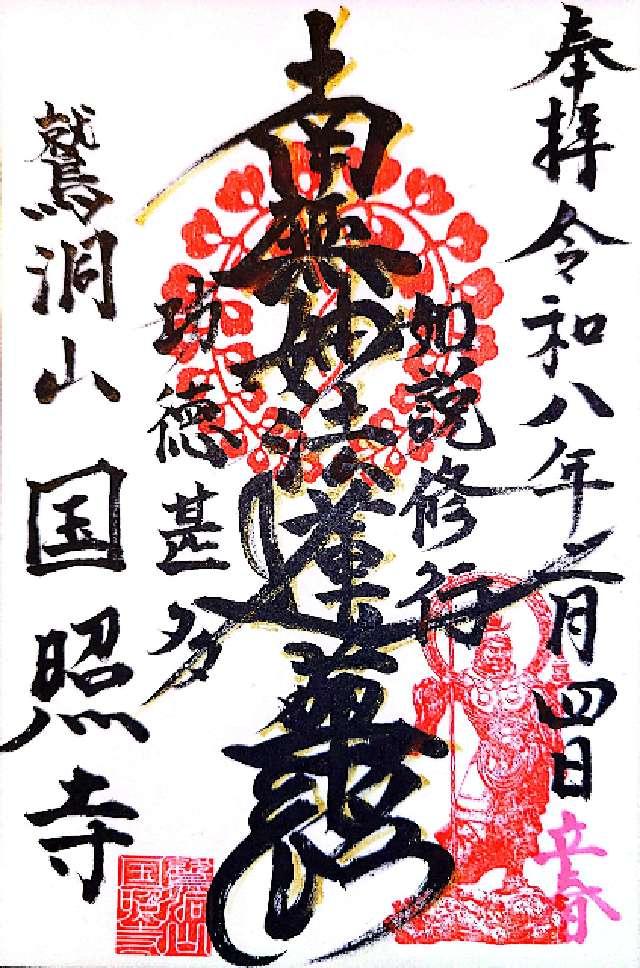 奉拝 令和八年二月四日
立春
如説修行
南無妙法蓮華経
功徳甚多
鷲洞山 国照寺
鷲洞山
国照寺